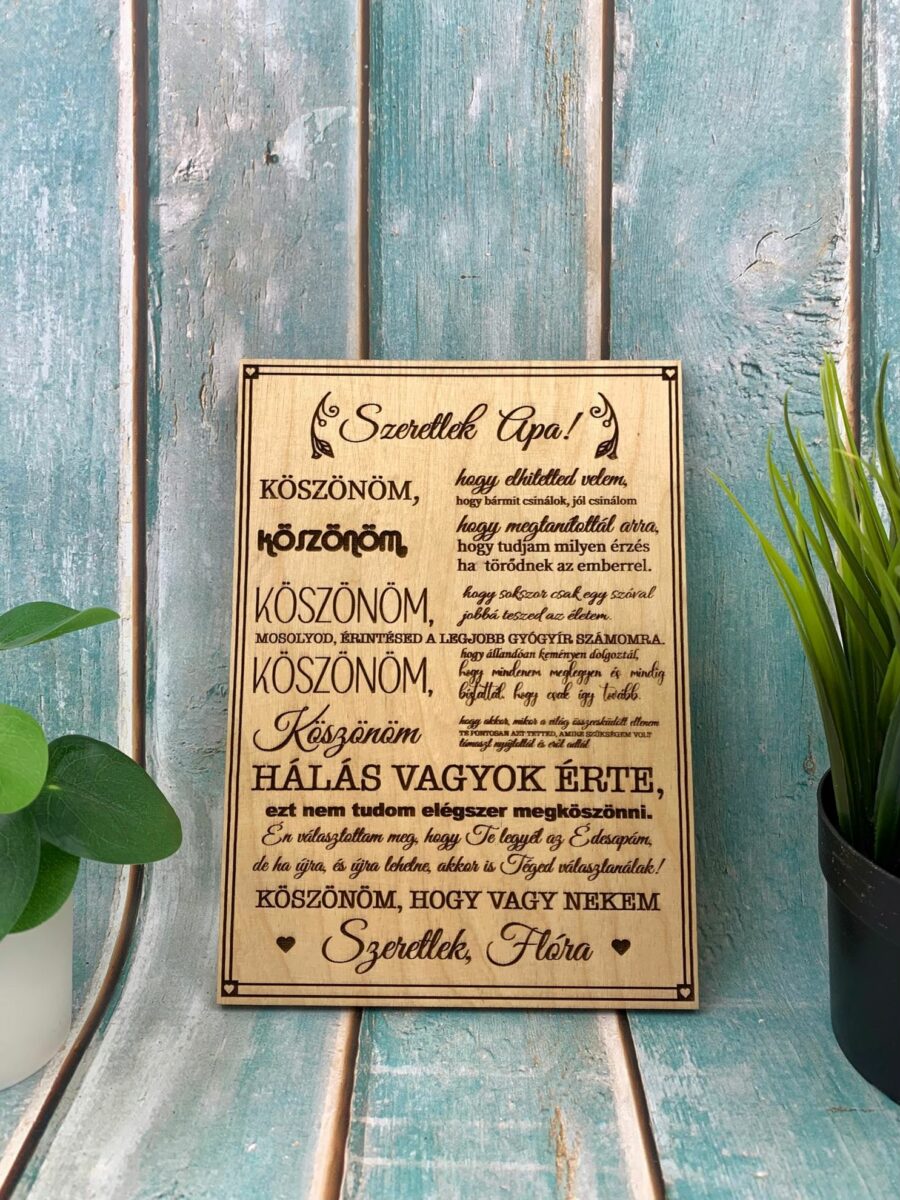 Szeretlek Apa!
KÖSZÖNÖM,
hogy elhitetted velem,
hogy bármit csinálok, jól csinálom
köszönöm,
hogy megtanítottál arra,
hogy tudjam milyen érzés
ha törődnek az emberrel.
KÖSZÖNÖM,
hogy sokszor csak egy szóval
jobbá teszed az életem.
MOSOLYOD, ÉRINTÉSED A LEGJOBB GYÓGYÍR SZÁMOMRA.
KÖSZÖNÖM,
hogy állandóan keményen dolgoztál,
hogy mindenem meglegyen és mindig
bíztattál, hogy csak így tovább.
Köszönöm
hogy akkor, mikor a világ összeesküdött ellenem
TE PONTOSAN AZT TETTED, AMIRE SZÜKSÉGEM VOLT
támaszt nyújtottál és erőt adtál
HÁLÁS VAGYOK ÉRTE,
ezt nem tudom elégszer megköszönni.
Én választottam meg, hogy Te legyél az Édesapám,
de ha újra, és újra lehetne, akkor is Téged választanálak!
KÖSZÖNÖM, HOGY VAGY NEKEM
Szeretlek, Flóra